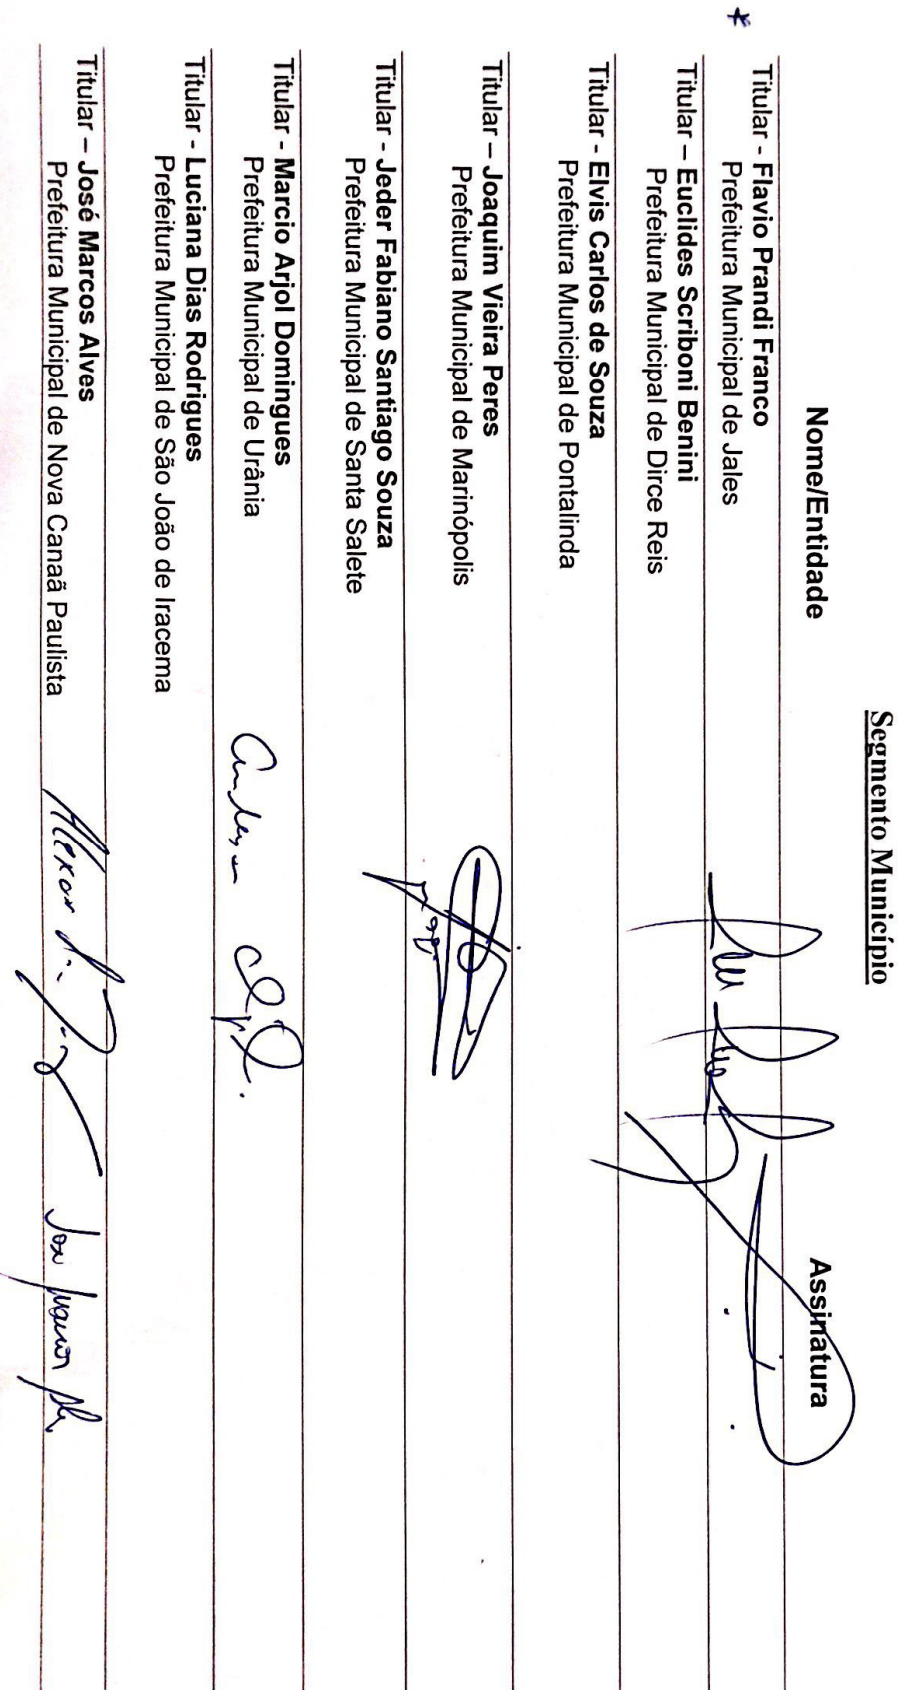 Segmento Município
Nome/Entidade Assinatura
* Titular - Flavio Prandi Franco
Prefeitura Municipal de Jales
Titular – Euclides Scriboni Benini
Prefeitura Municipal de Dirce Reis
Titular - Elvis Carlos de Souza
Prefeitura Municipal de Pontalinda
Titular – Joaquim Vieira Peres
Prefeitura Municipal de Marinópolis
Titular - Jeder Fabiano Santiago Souza
Prefeitura Municipal de Santa Salete
Titular - Marcio Arjol Domingues
Prefeitura Municipal de Urânia
Titular - Luciana Dias Rodrigues
Prefeitura Municipal de São João de Iracema
Titular – José Marcos Alves
Prefeitura Municipal de Nova Canaã Paulista